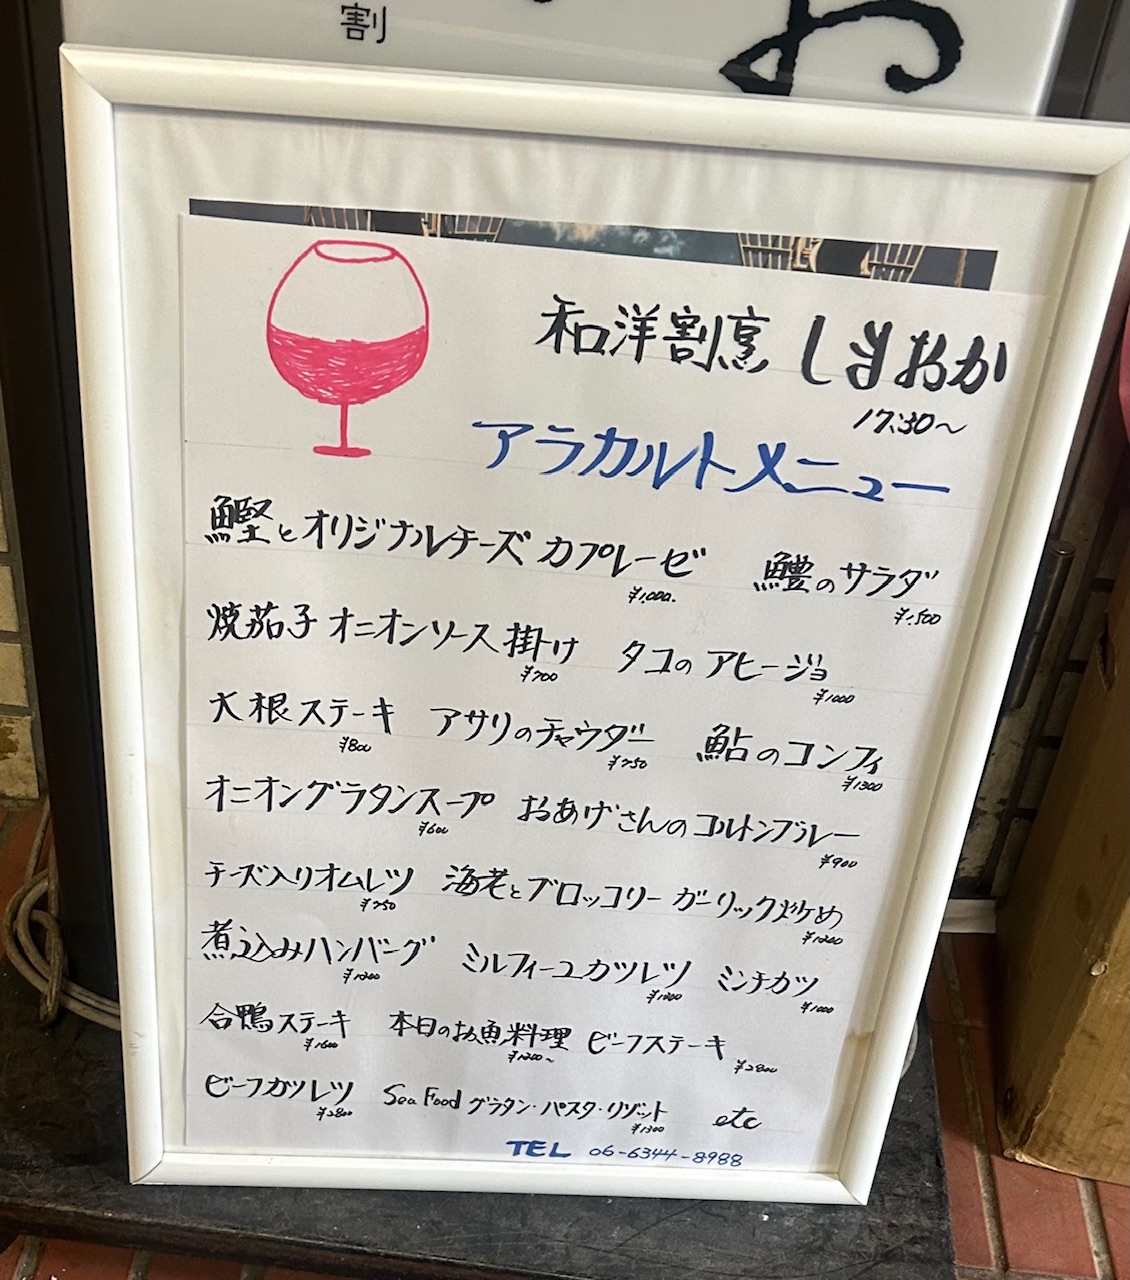 割
お
和洋割烹 しまおか
17:30〜
アラカルトメニュー
鰹とオリジナルチーズ カプレーゼ ¥1,000. 鱧のサラダ ¥1,500
焼茄子 オニオンソース掛け ¥700 タコの アヒージョ ¥1000
大根ステーキ ¥800 アサリのチャウダー ¥750 鮎のコンフィ ¥1300
オニオングラタンスープ ¥600 おあげさんのコルドンブルー ¥900
チーズ入りオムレツ ¥750 海老とブロッコリー ガーリック炒め ¥1200
煮込みハンバーグ ¥1200 ミルフィーユカツレツ ¥1200 ミンチカツ ¥1000
合鴨ステーキ ¥1600 本日のお魚料理 ¥1200〜 ビーフステーキ ¥2800
ビーフカツレツ ¥2800 Sea Food グラタン・パスタ・リゾット ¥1300 etc
TEL 06-6344-8988